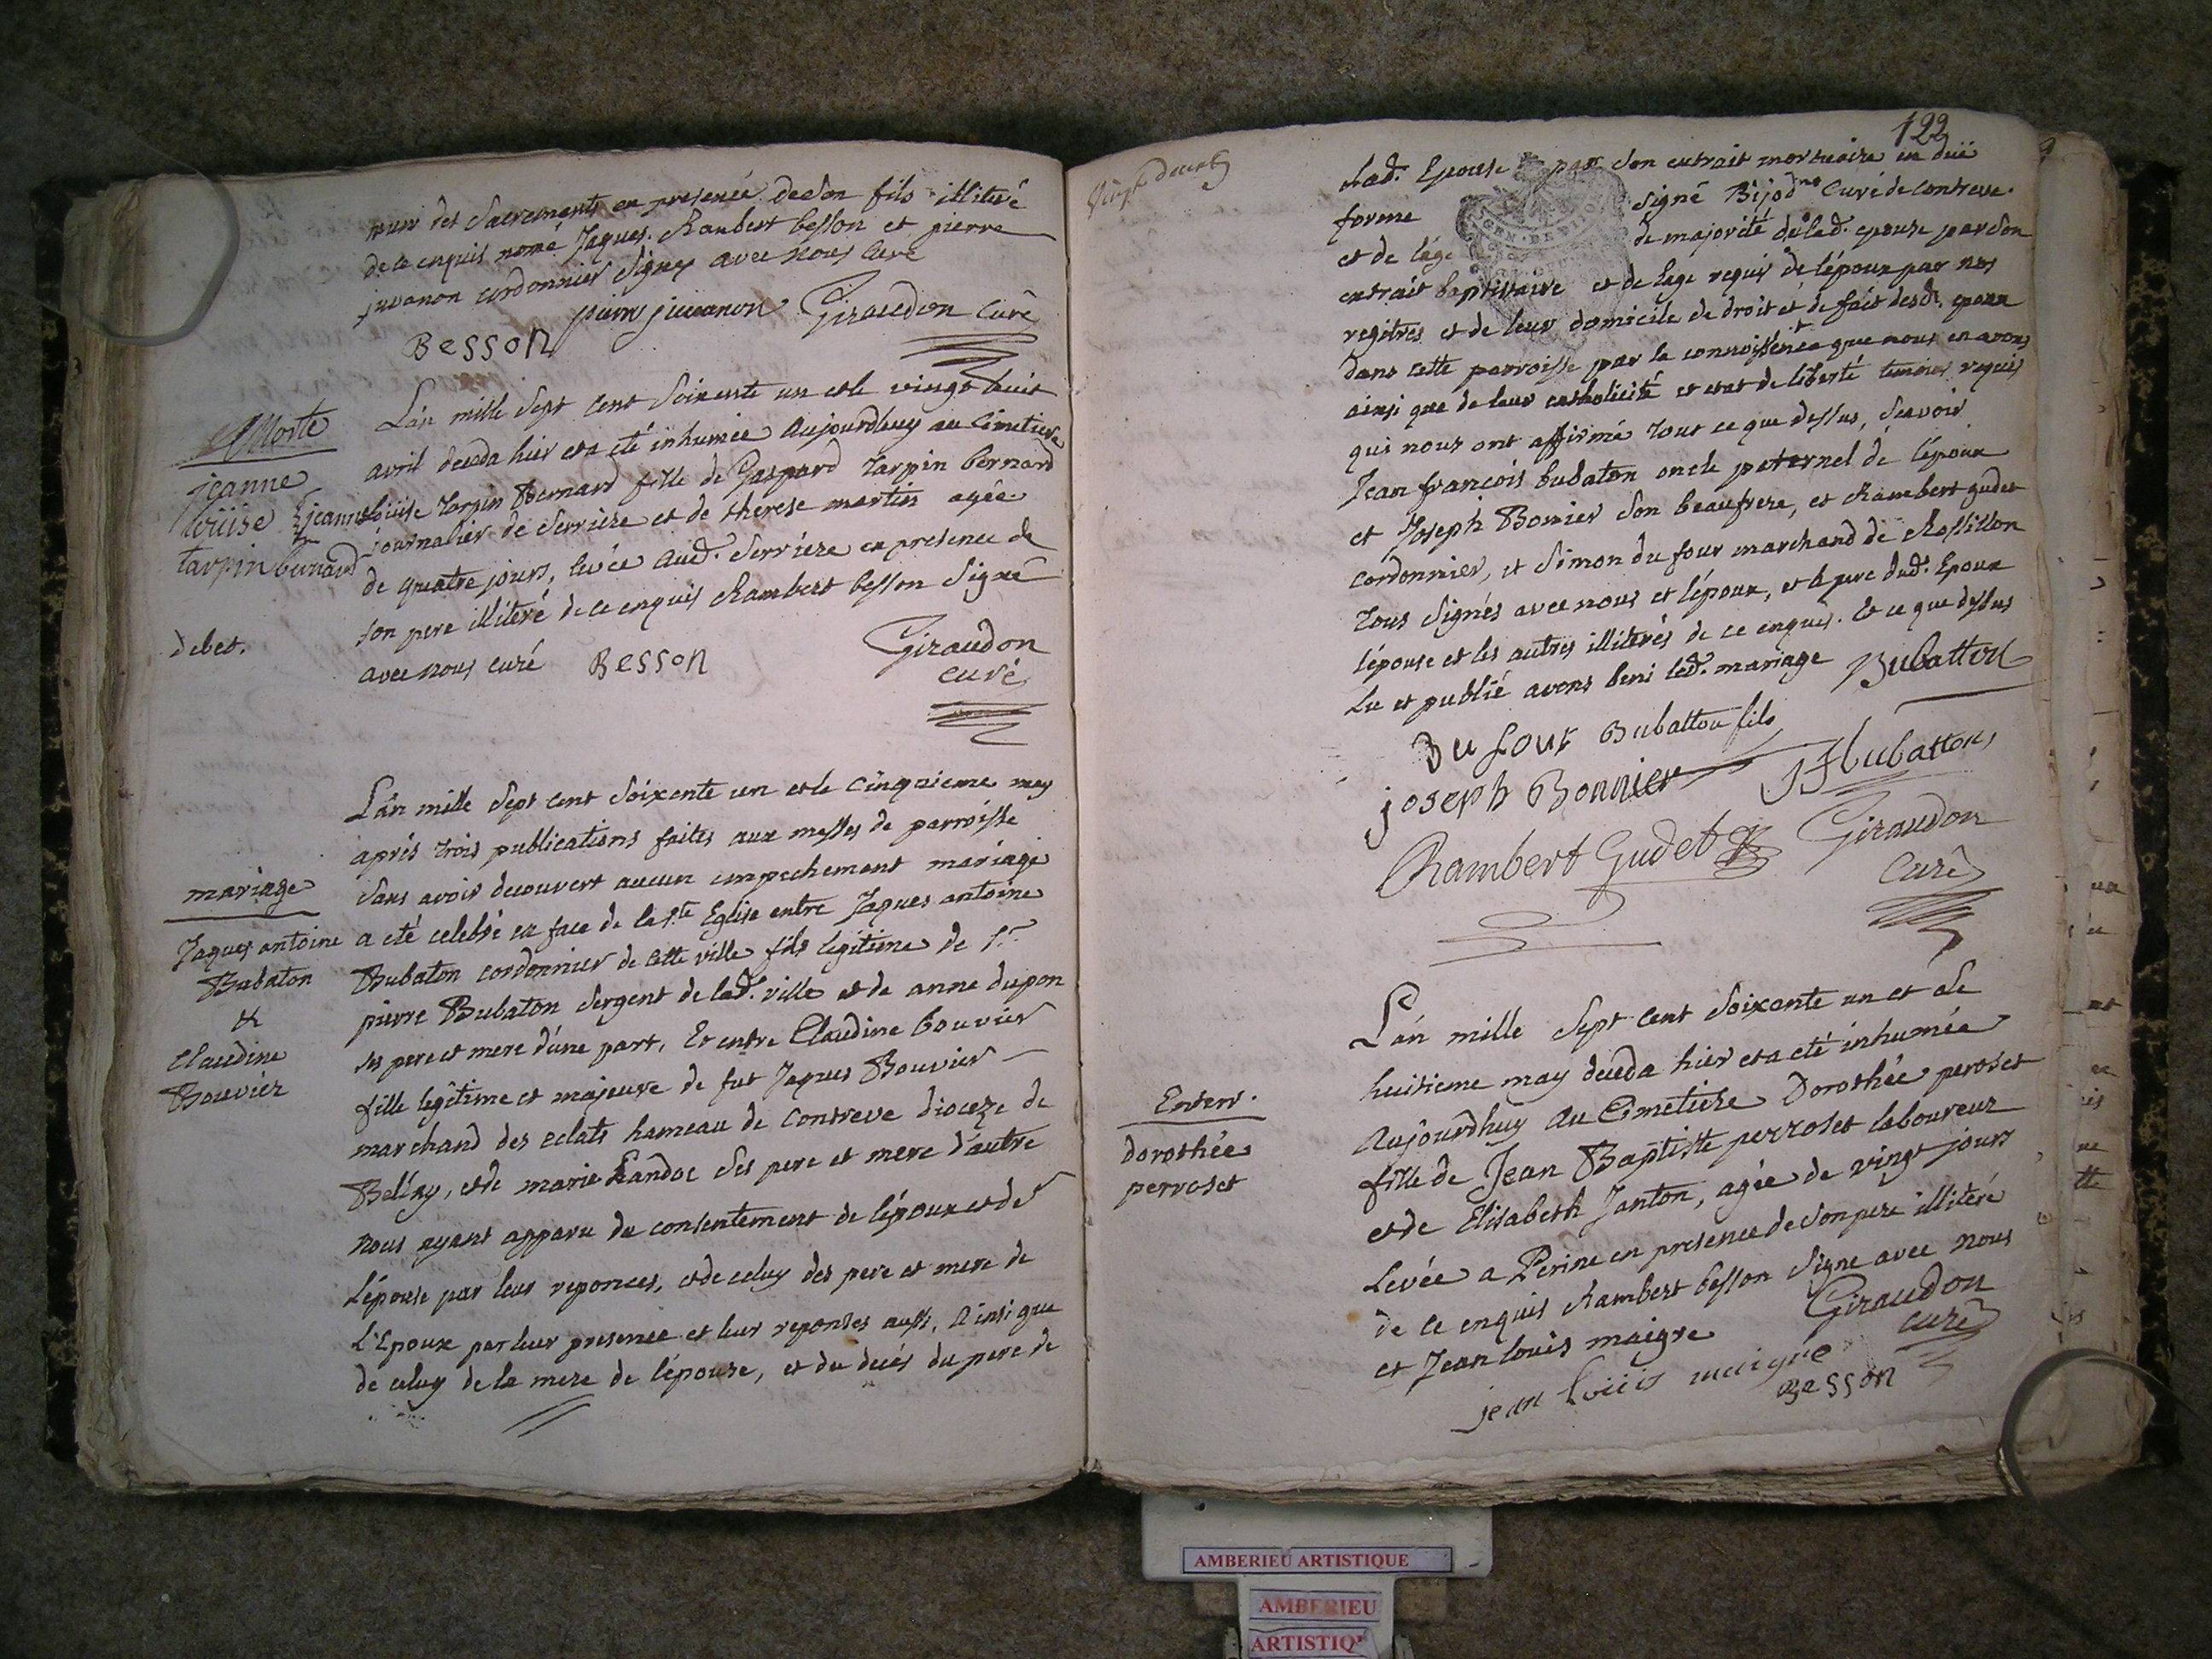 muni des sacrements en presence de son fils illiteré
de ce enquis nomé Jaques. Rambert besson et pierre
juvanon cordonnier signes avec nous curé
pierre juvanon Giraudon curé
Besson
Morte
jeanne
loüise
tarpin bernard
debet.
L'an mille sept cent soixente un et le vingt huit
avril deceda hier et a eté inhumée aujourdhuy au cimetiere
jeanne loüise tarpin Bernard fille de Gaspard tarpin bernard
journalier de serriere et de therese martin agée
de quatre jours, levée aud. serriere en presence de
son pere illiteré de ce enquis Rambert besson signé
avec nous curé Besson Giraudon
curé
mariage
Jaques antoine
Bubaton
&
Claudine
Bouvier
L'an mille sept cent soixente un et le cinquieme may
aprés trois publications faites aux messes de parroisse
sans avoir decouvert aucun empechement mariage
a eté celebré en face de la ste Eglise entre Jaques antoine
Bubaton cordonnier de cette ville fils legitime de sr
pierre Bubaton sergent de lad. ville et de anne dupon
ses pere et mere d'une part, Et entre Claudine bouvier
fille legitime et majeure de fut Jaques Bouvier
marchand des eclats hameau de contreve dioceze de
Belley, et de marie Landoz ses pere et mere d'autre
nous ayant apparu du consentement de l'époux et de
l'épouse par leur reponces, et de celuy des pere et mere de
l'Epoux par leur presence et leur reponses aussi, ainsi que
de celuy de la mere de l'épouse, et du decés du pere de
122
Vingt deux
Lad. Epouse par son extrait mortuaire en duë
forme signé Bijod curé de contreve.
et de l'âge de majorité de lad. epouse par son
extrait baptistaire et de l'age requis de l'époux par nos
regitres et de leur domicile de droit et de fait desd. epoux
dans cette parroisse par la connoissence que nous en avons
ainsi que de leur catholicité et etat de liberté temoins requis
qui nous ont affirmé tout ce que dessus, sçavoir
Jean françois bubaton oncle paternel de l'époux
et Joseph Bonnier son beaufrere, et Rambert gudet
cordonnier, et Simon du four marchand de Rossillon
tous signés avec nous et l'époux, et le pere dud. Epoux
l'épouse et les autres illiterés de ce enquis. Et ce que dessus
lu et publié avons beni led. mariage Bubatton
Du four Bubatton fils
joseph Bonnier JF bubatton
Rambert Gudet Giraudon
curé
Enterr.
dorothée
perroset
L'an mille sept cent soixente un et le
huitieme may deceda hier et a eté inhumée
aujourdhuy au Cimetiere Dorothée perroset
fille de Jean Baptiste perroset laboureur
et de Elisabeth Janton, agée de vingt jours
Levée a Perine en presence de son pere illiteré
de ce enquis Rambert besson signe avec nous
et Jean louis maigre Giraudon
curé
jean loüis maigre
Besson
AMBERIEU ARTISTIQUE
AMBERIEU
ARTISTIQ